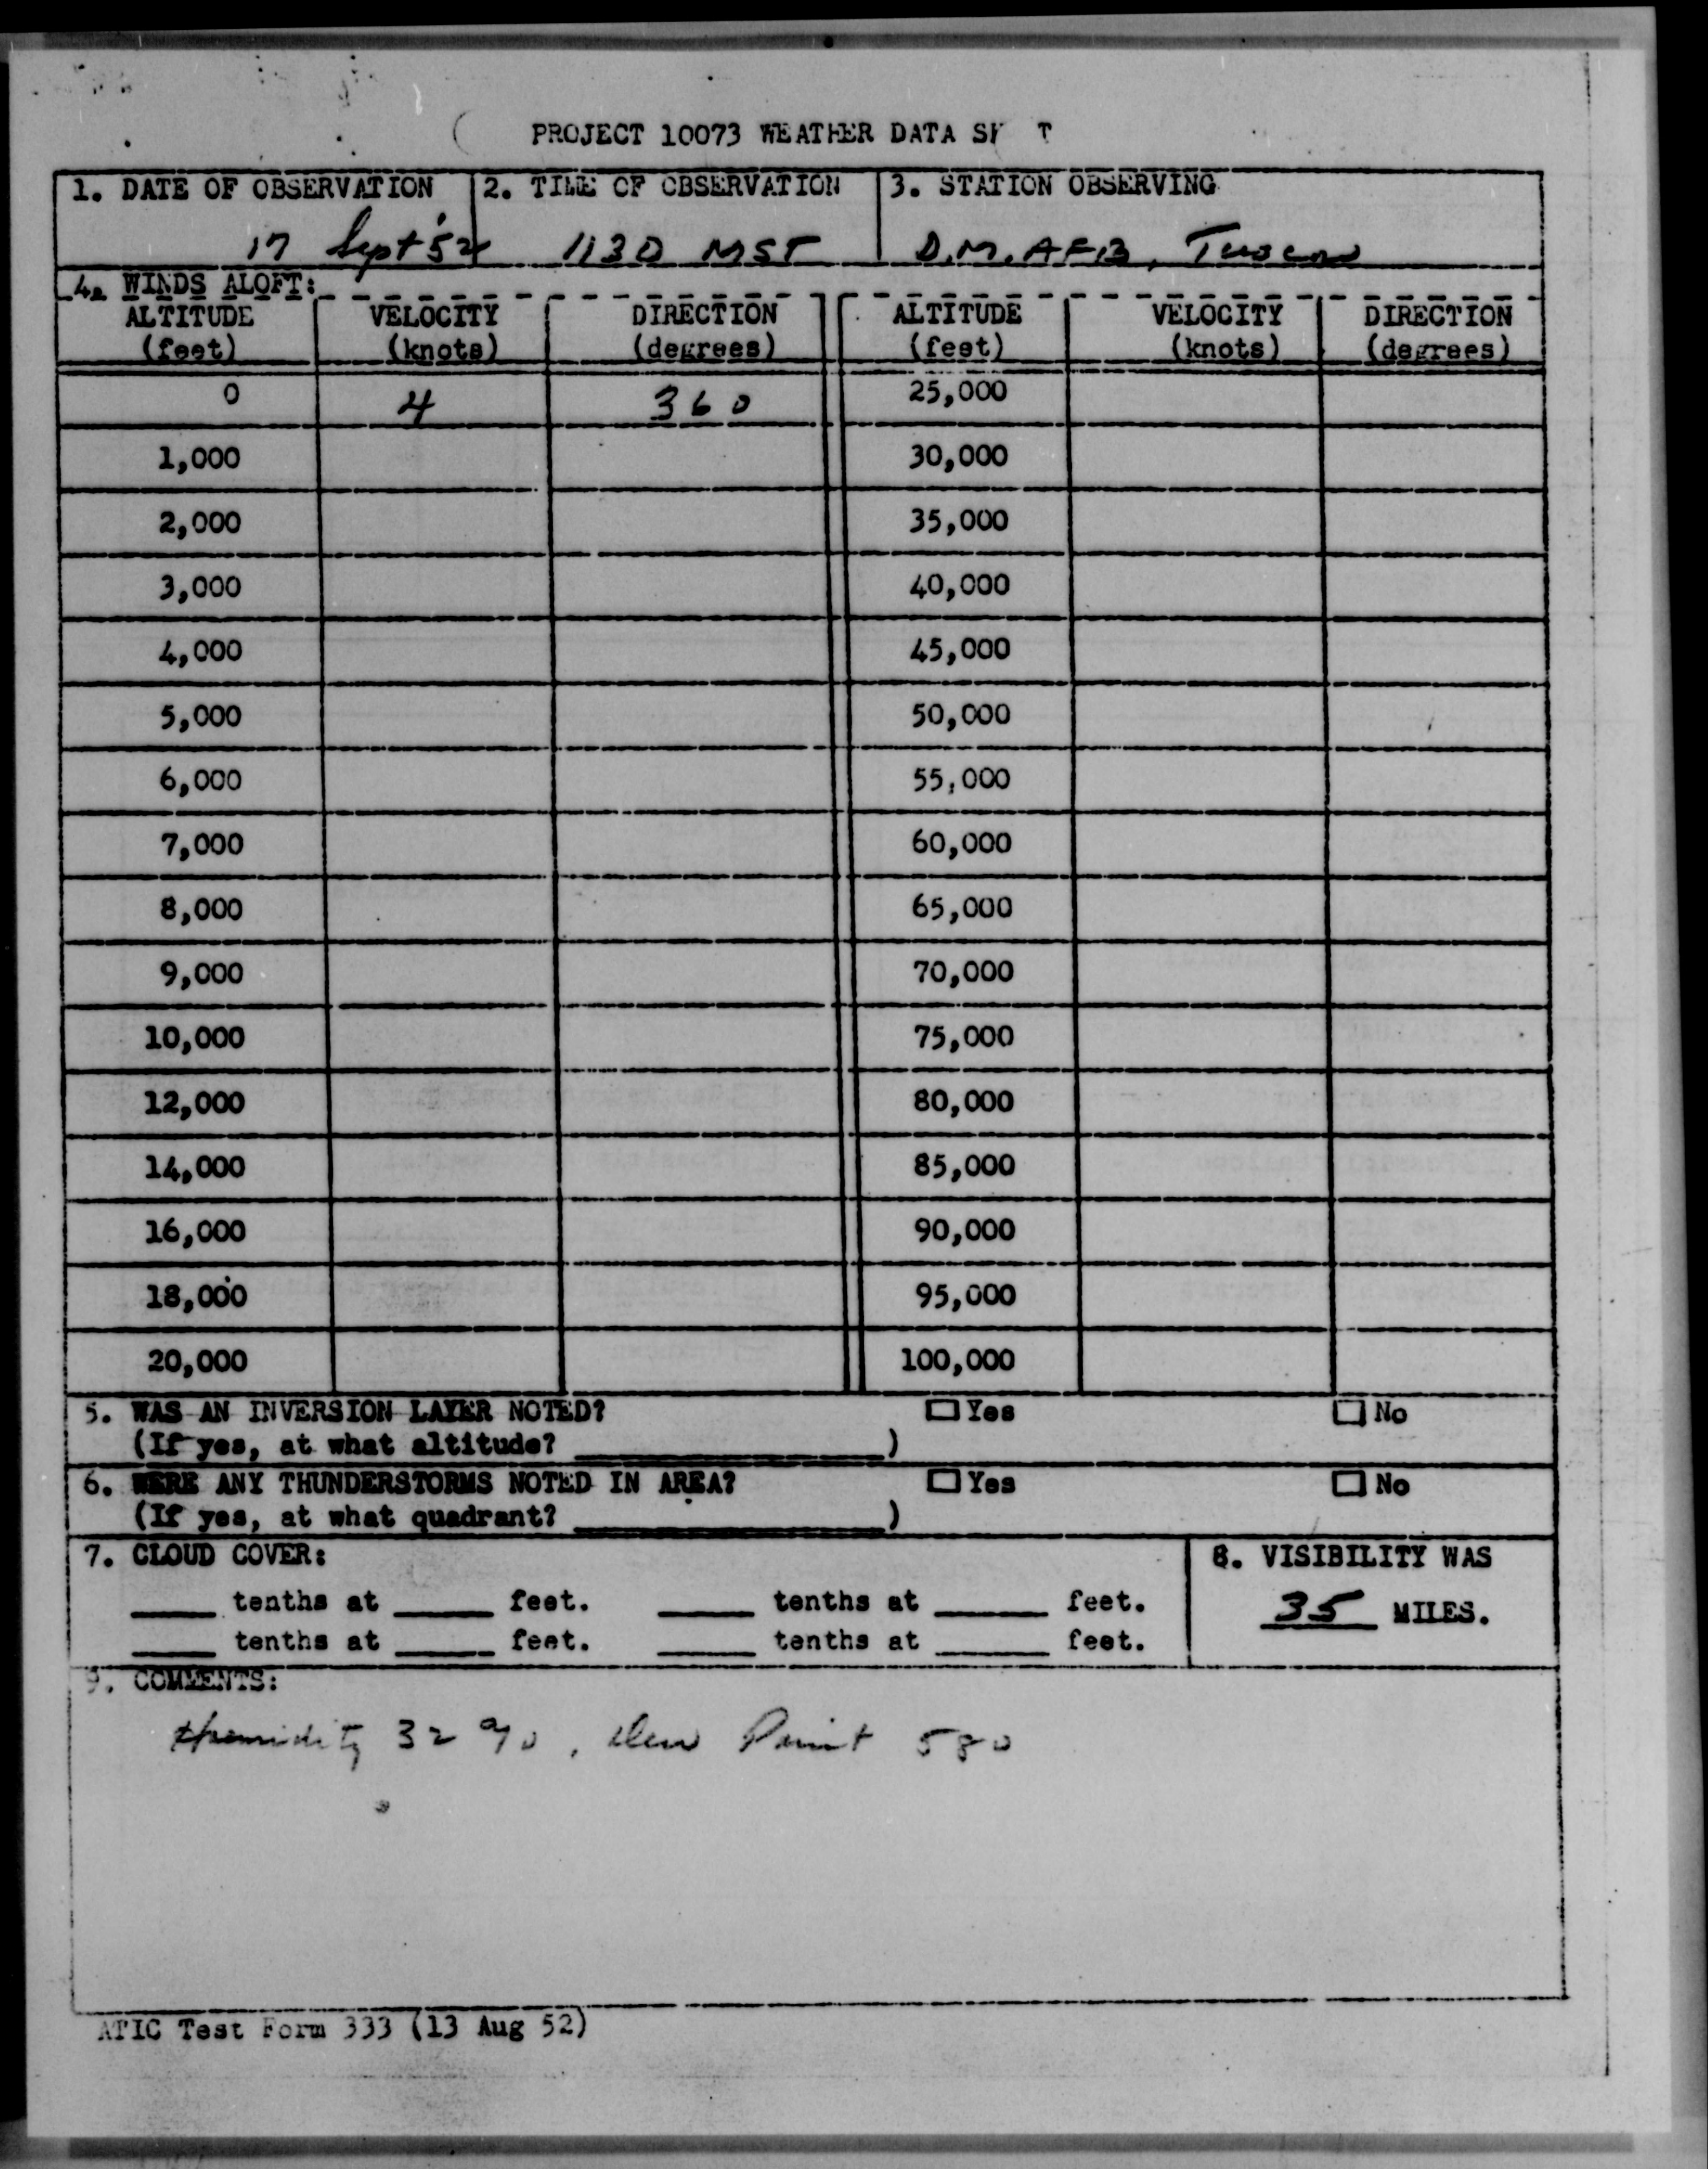 PROJECT 10073 WEATHER DATA SH T
1. DATE OF OBSERVATION 2. TIME OF OBSERVATION 3. STATION OBSERVING
17 Sept '52 1130 MST D.M. AFB, Tuscon
4. WINDS ALOFT:
ALTITUDE VELOCITY DIRECTION ALTITUDE VELOCITY DIRECTION
(feet) (knots) (degrees) (feet) (knots) (degrees)
0 4 360 25,000
1,000 30,000
2,000 35,000
3,000 40,000
4,000 45,000
5,000 50,000
6,000 55,000
7,000 60,000
8,000 65,000
9,000 70,000
10,000 75,000
12,000 80,000
14,000 85,000
16,000 90,000
18,000 95,000
20,000 100,000
5. WAS AN INVERSION LAYER NOTED? Yes No
(If yes, at what altitude? )
6. WERE ANY THUNDERSTORMS NOTED IN AREA? Yes No
(If yes, at what quadrant? )
7. CLOUD COVER: 8. VISIBILITY WAS
tenths at feet. tenths at feet. 35 MILES.
tenths at feet. tenths at feet.
9. COMMENTS:
Humidity 32 %, Dew Point 580
ATIC Test Form 333 (13 Aug 52)